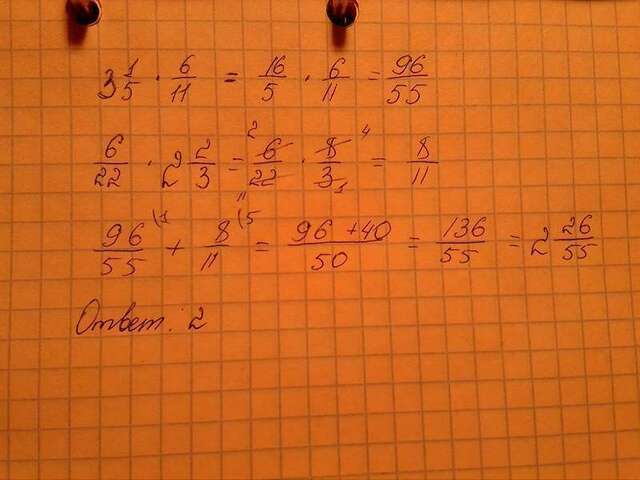 3 1/5 · 6/11 = 16/5 · 6/11 = 96/55
6/22 · 2 2/3 = 6/22 · 8/3 = 8/11
96/55 + 8/11 = 96 + 40/50 = 136/55 = 2 26/55
Ответ: 2